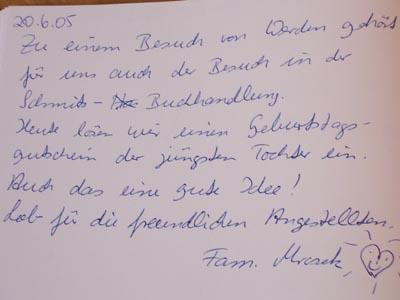 20.6.05
Zu einem Besuch von Werden gehört
für uns auch der Besuch in der
Schmitz- Buchhandlung.
Heute lösen wir einen Geburtstags-
gutschein der jüngsten Tochter ein.
Auch das eine gute Idee!
Lob für die freundlichen Angestellten.
Fam. Mrozek